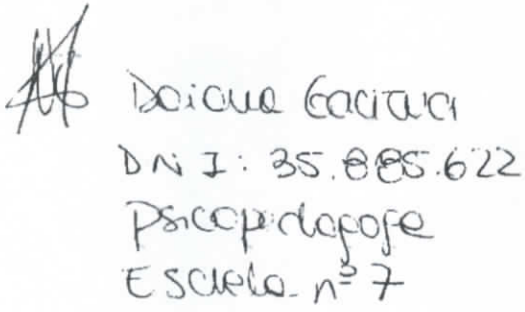 Daiana Gaciava
DNI: 35.885.622
Psicopedagoga
Escuela nº 7